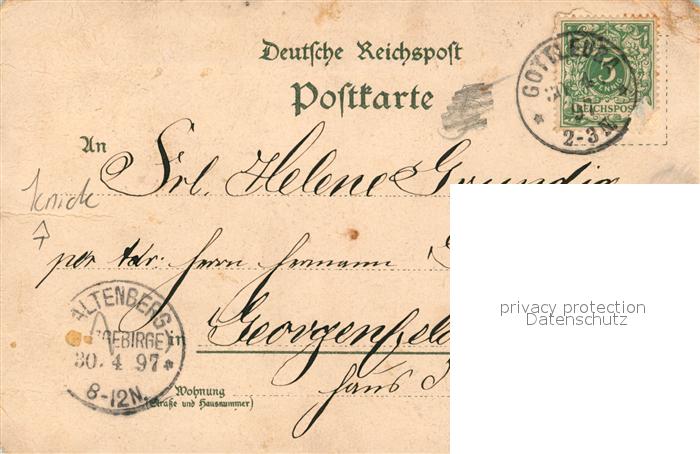 Deutsche Reichspost
Postkarte
GOTTLEUBA
5
PFENNIG
REICHSPOST
2-3N.
An Frl. Helene Grundig
knick
per Adr. Herrn Hermann
ALTENBERG
(ERZGEBIRGE)
30. 4 97
8-12N.
in Georgenfeld
Haus
Wohnung
(Straße und Hausnummer)
privacy protection
Datenschutz